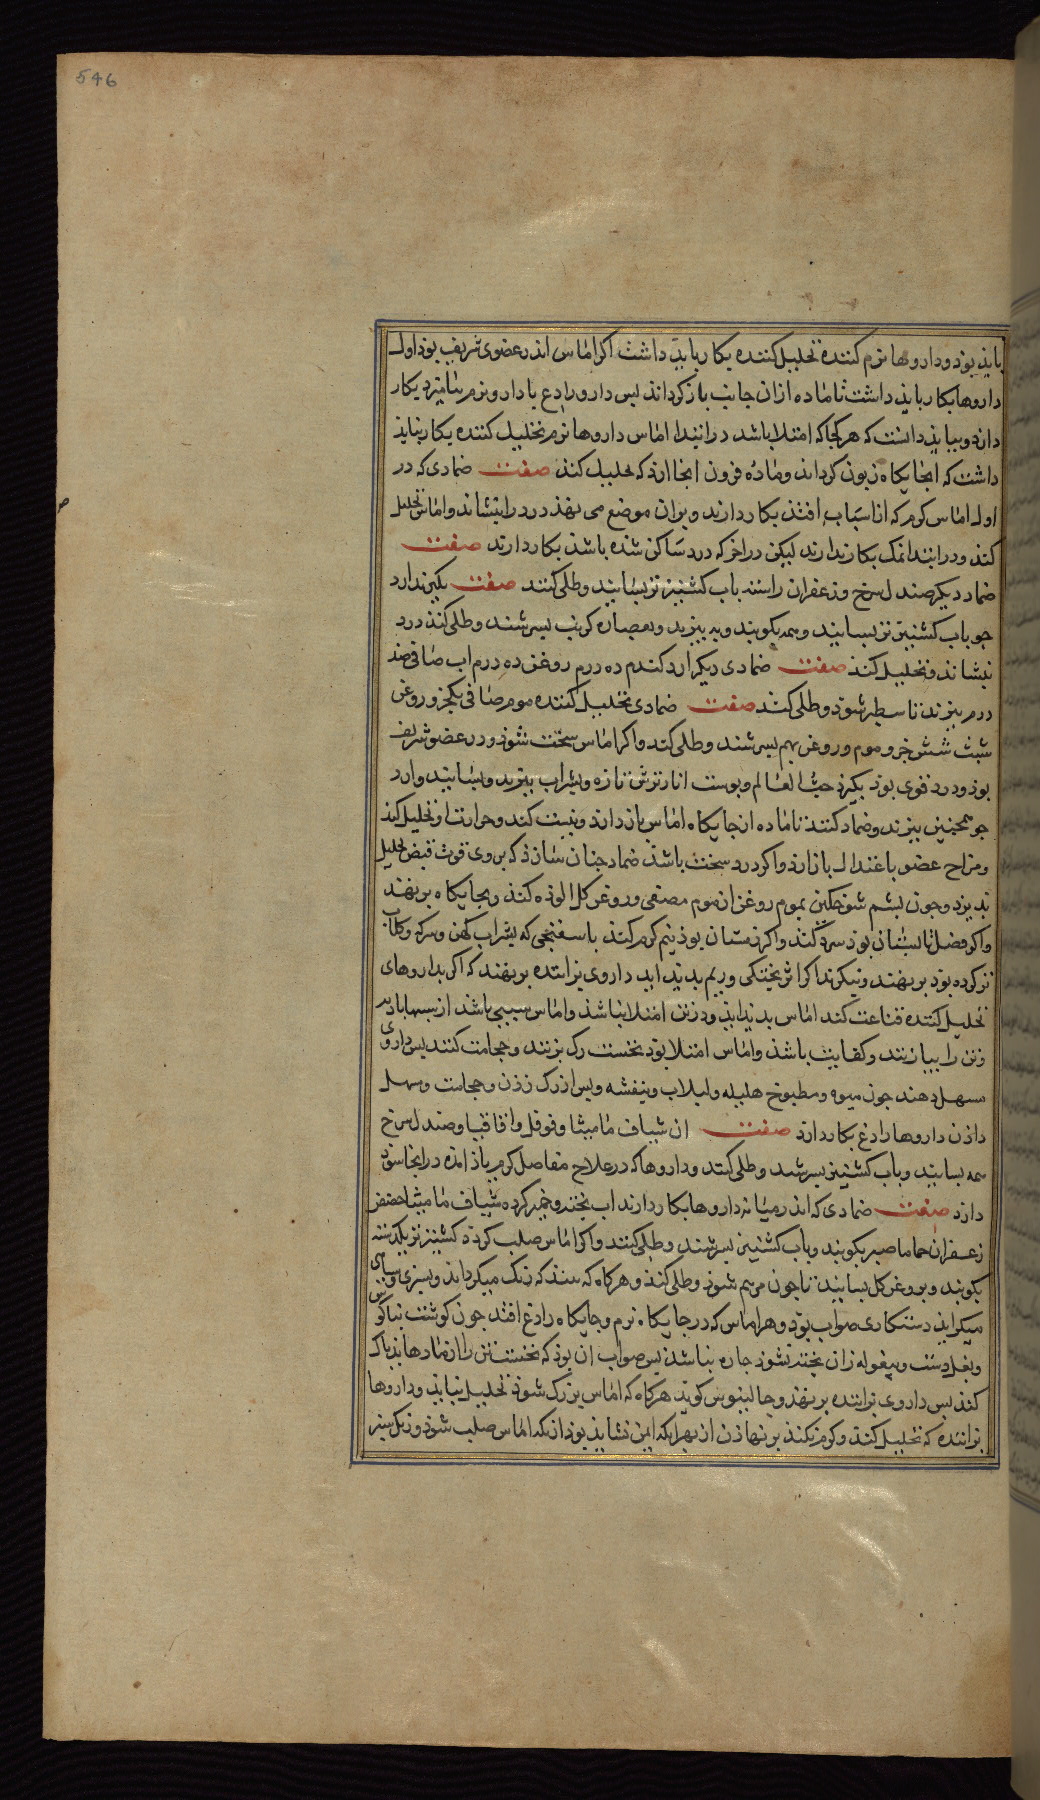 546
بایذ بوذ و داروها نرم کننده تحلیل کننده بکار بایذ داشت اکر اماس اندر عضوی شریف بوذ اول
داروها بکار بایذ داشت تا ماده ازان جانب باز کرداند بس دارو رادع با دارو نرم بیامیزد بکار
دارد و ببایذ دانست که هر کجا که امتلا باشد در ابتدا اماس داروها نرم تحلیل کننده بکار نباید
داشت که انجایکاه زبون کرداند و ماده فزون انجا ارد که تحلیل کند صفت ضمادی که در
اول اماس کرم که از اسباب افتذ بکار دارند و بران موضع می نهند درد را بنشاند و اماس تحلیل
کند و در ابتدا نمک بکار ندارند لیکن در اخر که درد ساکن شذه باشذ بکار دارند صفت
ضماد دیکر صندل سرخ و زعفران راستد باب کشنیز تر بسایند و طلی کنند صفت بکیرند ارد
جو باب کشنیز تر بسایند و همه بکوبند و به بیزند و بعصاره کرنب بسرشند و طلی کنند درد
بنشاند و تحلیل کند صفت ضمادی دیکر ارد کندم ده درم روغن ده درم اب صافی صد
درم ببزند تا سطبر شود و طلی کنند صفت ضمادی تحلیل کننده موم صافی یکجزو روغن
شبث شش جزو موم و روغن بهم بسرشند و طلی کنند و اکر اماس سخت شوذ و در عضو شریف
بوذ و درد قوی بوذ بکیرند حی العالم و بوست انار ترش تازه و بشراب ببزند و بسایند و ارد
جو همجنین ببزند و ضماد کنند تا ماده ازجایکاه اماس باز دارد و نیست کند و حرارت او تحلیل کند
و مزاج عضو باعتدال باز ارد و اکر درد سخت باشذ ضماد جنان سازند که بروی قوت قبض تحلیل
و اکر فصل تابستان بوذ سرد کنند و اکر زمستان بوذ نیم کرم کنند با سفنجی که بشراب کهن و سرکه و کلاب
تر کرده بوذ بر نهند و نیکرند اکر اثر بختکی و ریم بدید ابد داروی بزاننده بر نهند که اکر بداروهای
تحلیل کننده قناعت کند اماس بد بدید ابد و در تن امتلا نباشذ و اماس سببی باشذ از سببها بادیه
و تن را بیازنند و کفایت باشذ و اماس امتلا بوذ نخست رک بزنند و حجامت کنند بس داروی
مسهل دهند جون میوه و مطبوخ هلیله و لبلاب و بنفشه و بس از رک زذن و حجامت و مسهل
داذن داروها رادع بکار دارد صفت ان شیاف مامیثا و فوفل و اقاقیا و صندل سرخ
همه بسایند و باب کشنیز بسرشند و طلی کنند و داروها که در علاج مفاصل کرم یاذ امذه در اینجا سوذ
دارد صفت ضمادی که اندر میانه داروها بکار دارند اب بخته و خمیر کرده شیاف مامیثا حضض
زعفران حماما صبر بکوبند و باب کشنیز بسرشند و طلی کنند و اکر اماس صلب کردد کشنیز تر یکدسته
بکوبند و بروغن کل بسایند تا جون مرهم شوذ و طلی کنند و هرکاه که بینند که رنک میکرداند و بسبزی و سیاهی
میکراید دستکاری صواب بوذ و هر اماس که در جایکاه نرم و جایکاه رادع افتد جون کوشت بناکوش
و بغل دست و بیغوله ران بخته نشوذ جاره نباشد بس صواب ان بوذ که نخست تن را از مادها بذ باک
کنند بس داروی بزاننده بر نهند و جالینوس کوید هرکاه که اماس بزرک شوذ تحلیل نبایذ و داروها
بزاننده که تحلیل کند و کرم نکند بر نهاذن از بهر انکه ایمن نشایذ بوذ ازانکه اماس صلب شوذ و رنک سبز